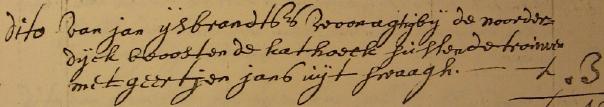 dito van jan ijsbrandtsz woonagtigh bij de noorder-
dijck beoosten de kathoeck sullende trouwen
met geertjen jans uijt swaagh. — 3